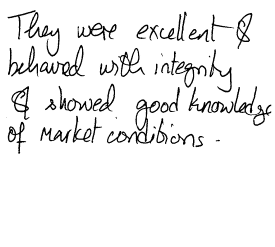 They were excellent &
behaved with integrity
& showed good knowledge
of market conditions.